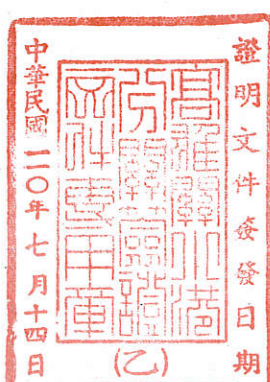 證明文件簽發日期
高雄關小港
分關簽證
專用章
中華民國一一〇年七月十四日
(乙)